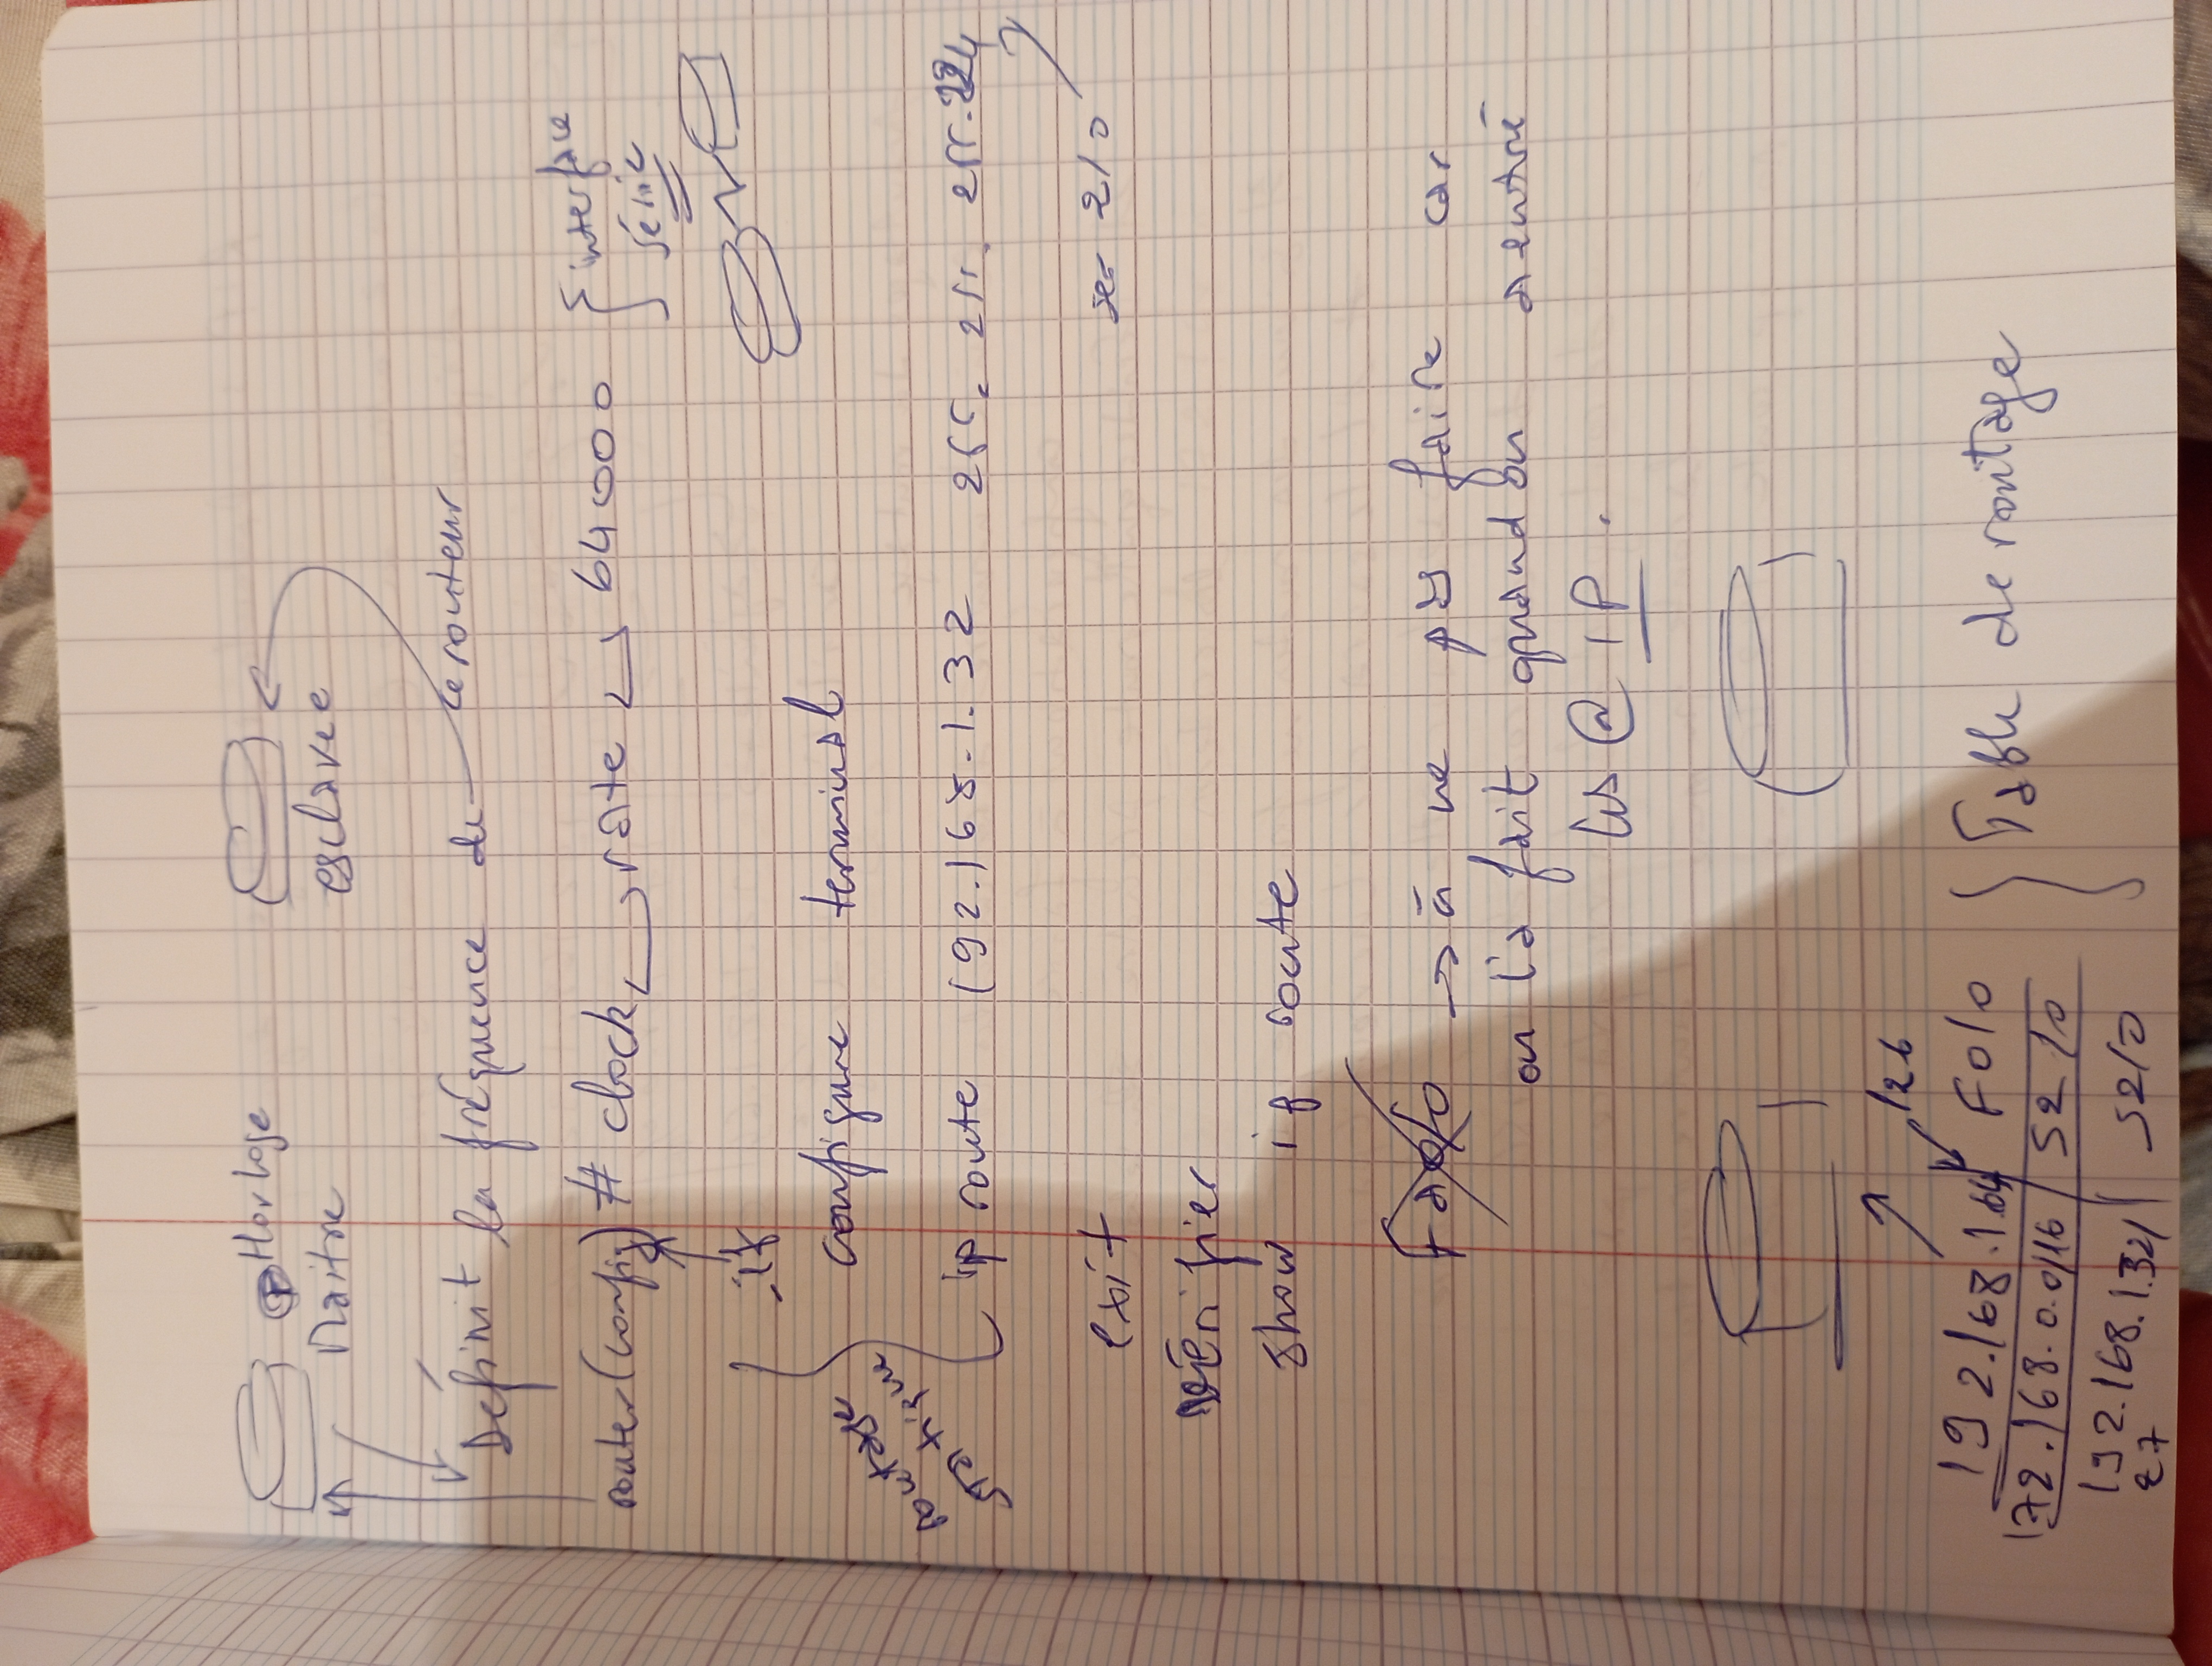 Horloge
Maitre
esclavee
Définit la fréquence de ce routeur
router (config) # clock rate 64000
interface
série
-if
configure terminal
routage
statique
ip route 192.168.1.32 255.255.255.224
ser 2/0
exit
Vérifier
show ip route
Fa0/0 → à ne pas faire car
on l'a fait quand on a entré
les @ IP.
/26
192.168.1.64 F0/0
172.168.0.0/16 S2/0
192.168.1.32/ S2/0
27
Table de routage